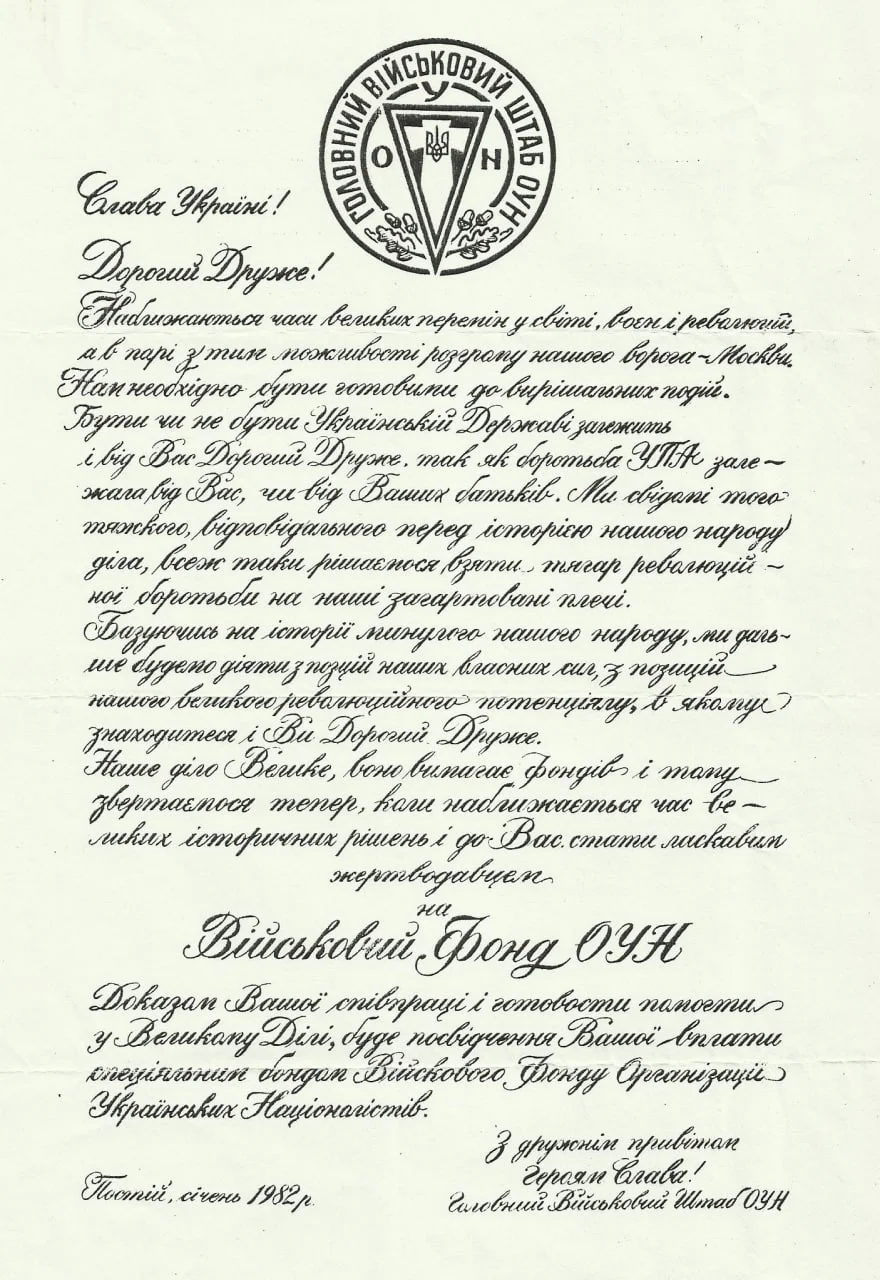 ГОЛОВНИЙ ВІЙСЬКОВИЙ ШТАБ ОУН
У
О Н
Слава Україні!
Дорогий Друже!
Наближаються часи великих перемін у світі, воєн і революцій,
а в парі з тим можливості розгрому нашого ворога – Москви.
Нам необхідно бути готовими до вирішальних подій.
Бути чи не бути Українській Державі залежить
і від Вас Дорогий Друже. так як боротьба УПА зале–
жала від Вас, чи від Ваших батьків. Ми свідомі того
тяжкого, відповідального перед історією нашого народу
діла, всеж таки рішаємося взяти тягар революцій –
ної боротьби на наші загартовані плечі.
Базуючись на історії минулого нашого народу, ми даль–
ше будемо діяти з позцій наших власних сил, з позицій
нашого великого революційного потенціялу, в якому
знаходитеся і Ви Дорогий Друже.
Наше діло Велике, воно вимагає фондів і тому
звертаємося тепер, коли наближається час ве –
ликих історичних рішень і до Вас. стати ласкавим
жертводавцем
на
Військовий Фонд ОУН
Доказом Вашої співпраці і готовости помогти
у Великому Ділі, буде посвідчення Вашої вплати
спеціяльним бондом Війскового Фонду Організації
Українських Націоналістів.
З дружнім привітом
Героям Слава!
Постій, січень 1982 р.
Головний Військовий Штаб ОУН